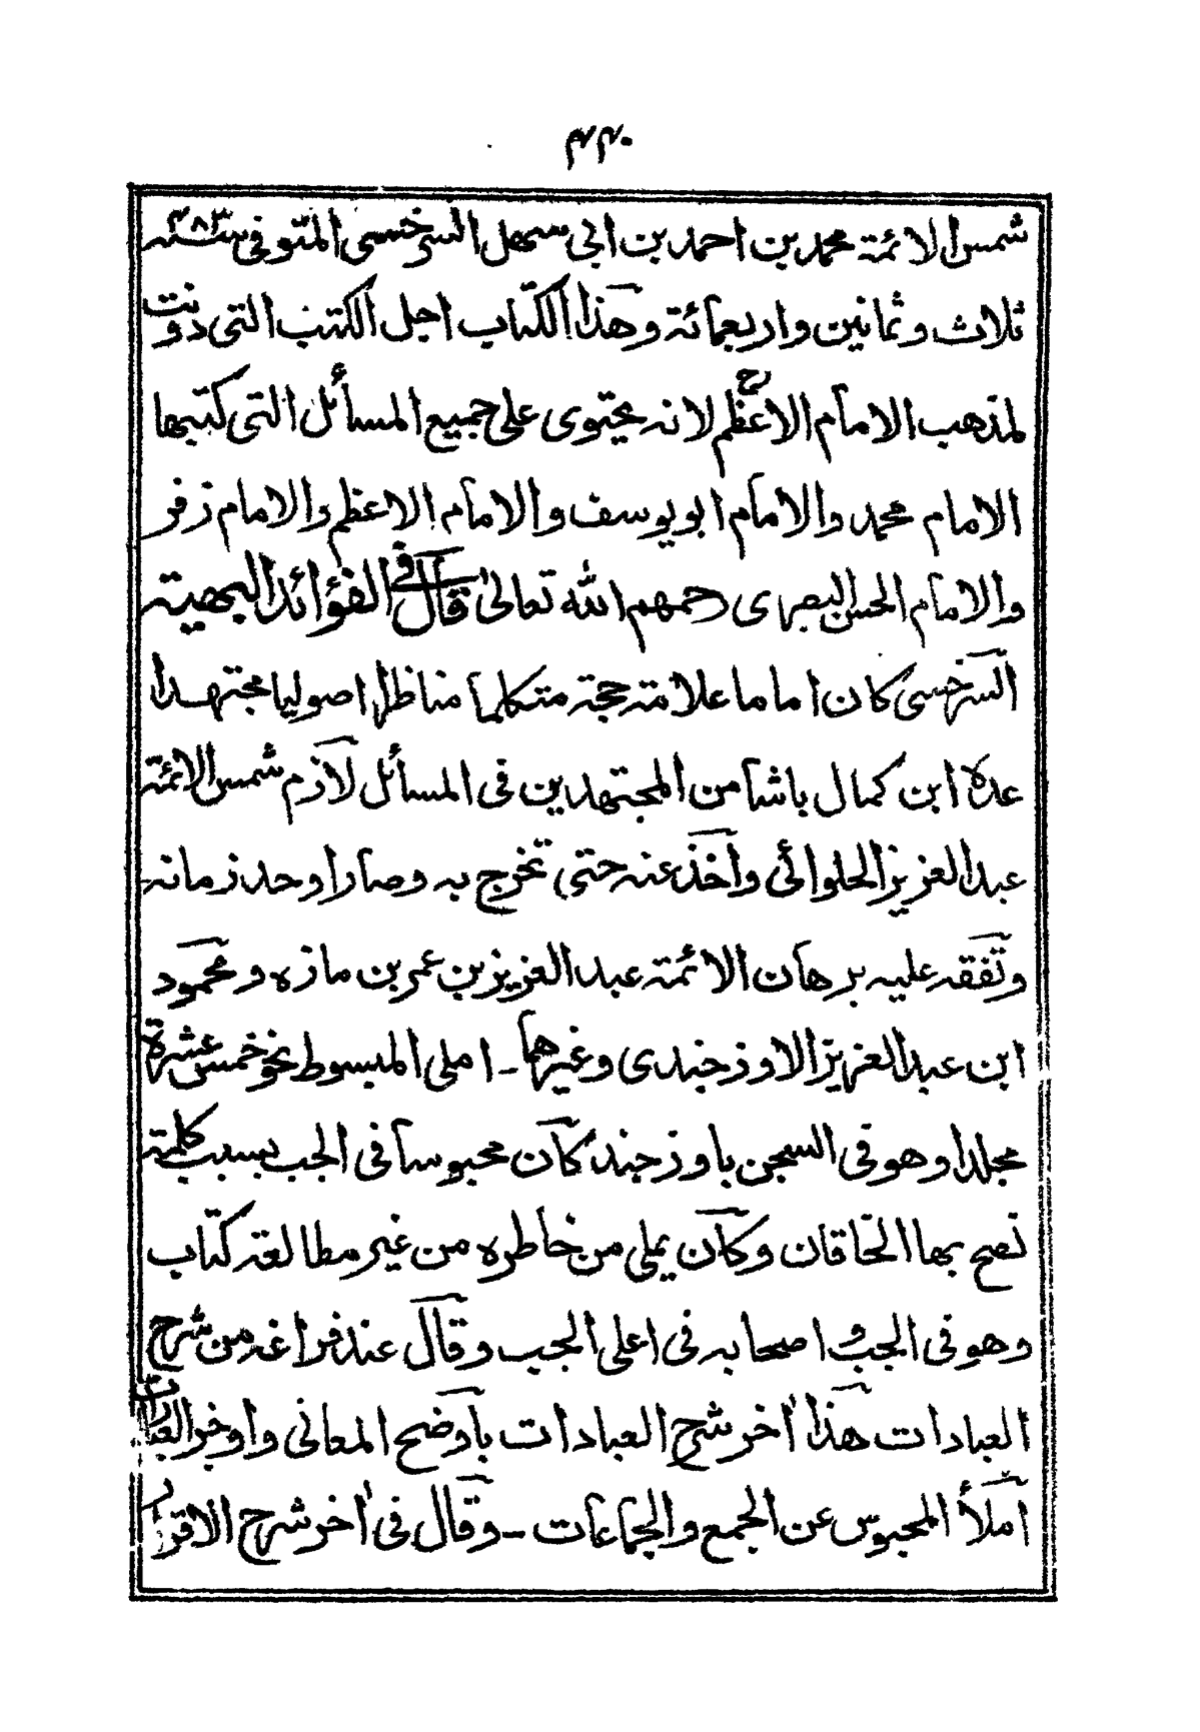 ۴۴۰
شمس الائمة محمد بن احمد بن ابی سهل السرخسی المتوفی سنة ۴۸۳
ثلاث وثمانین واربعمائة وهذا الکتاب اجل الکتب التی دونت
لمذهب الامام الاعظم رح لانه یحتوی علی جمیع المسائل التی کتبها
الامام محمد والامام ابو یوسف والامام الاعظم والامام زفر
والامام الحسن البصری رحمهم الله تعالیٰ قال فی الفوٴائد البهیة
السرخسی کان اماما علامة حجة متکلما مناظرا اصولیا مجتهدا
عده ابن کمال باشا من المجتهدین فی المسائل لازم شمس الائمة
عبد العزیز الحلوائی واخذ عنه حتی تخرج به وصار اوحد زمانه
وتفقه علیه برهان الائمة عبد العزیز بن عمر بن مازه ومحمود
ابن عبد العزیز الاوزجندی وغیرهما - املی المبسوط نحو خمس عشرة
مجلدا وهو فی السجن باوزجند کان محبوسا فی الجب بسبب کلمة
نصح بها الخاقان وکان یملی من خاطره من غیر مطالعة کتاب
وهو فی الجب و اصحابه فی اعلی الجب وقال عند فراغه من شرح
العبادات هذا اٰخر شرح العبادات باوضح المعانی واوجز العبارات
املأ المحبوس عن الجمع والجماعات - وقال فی اٰخر شرح الاقرار